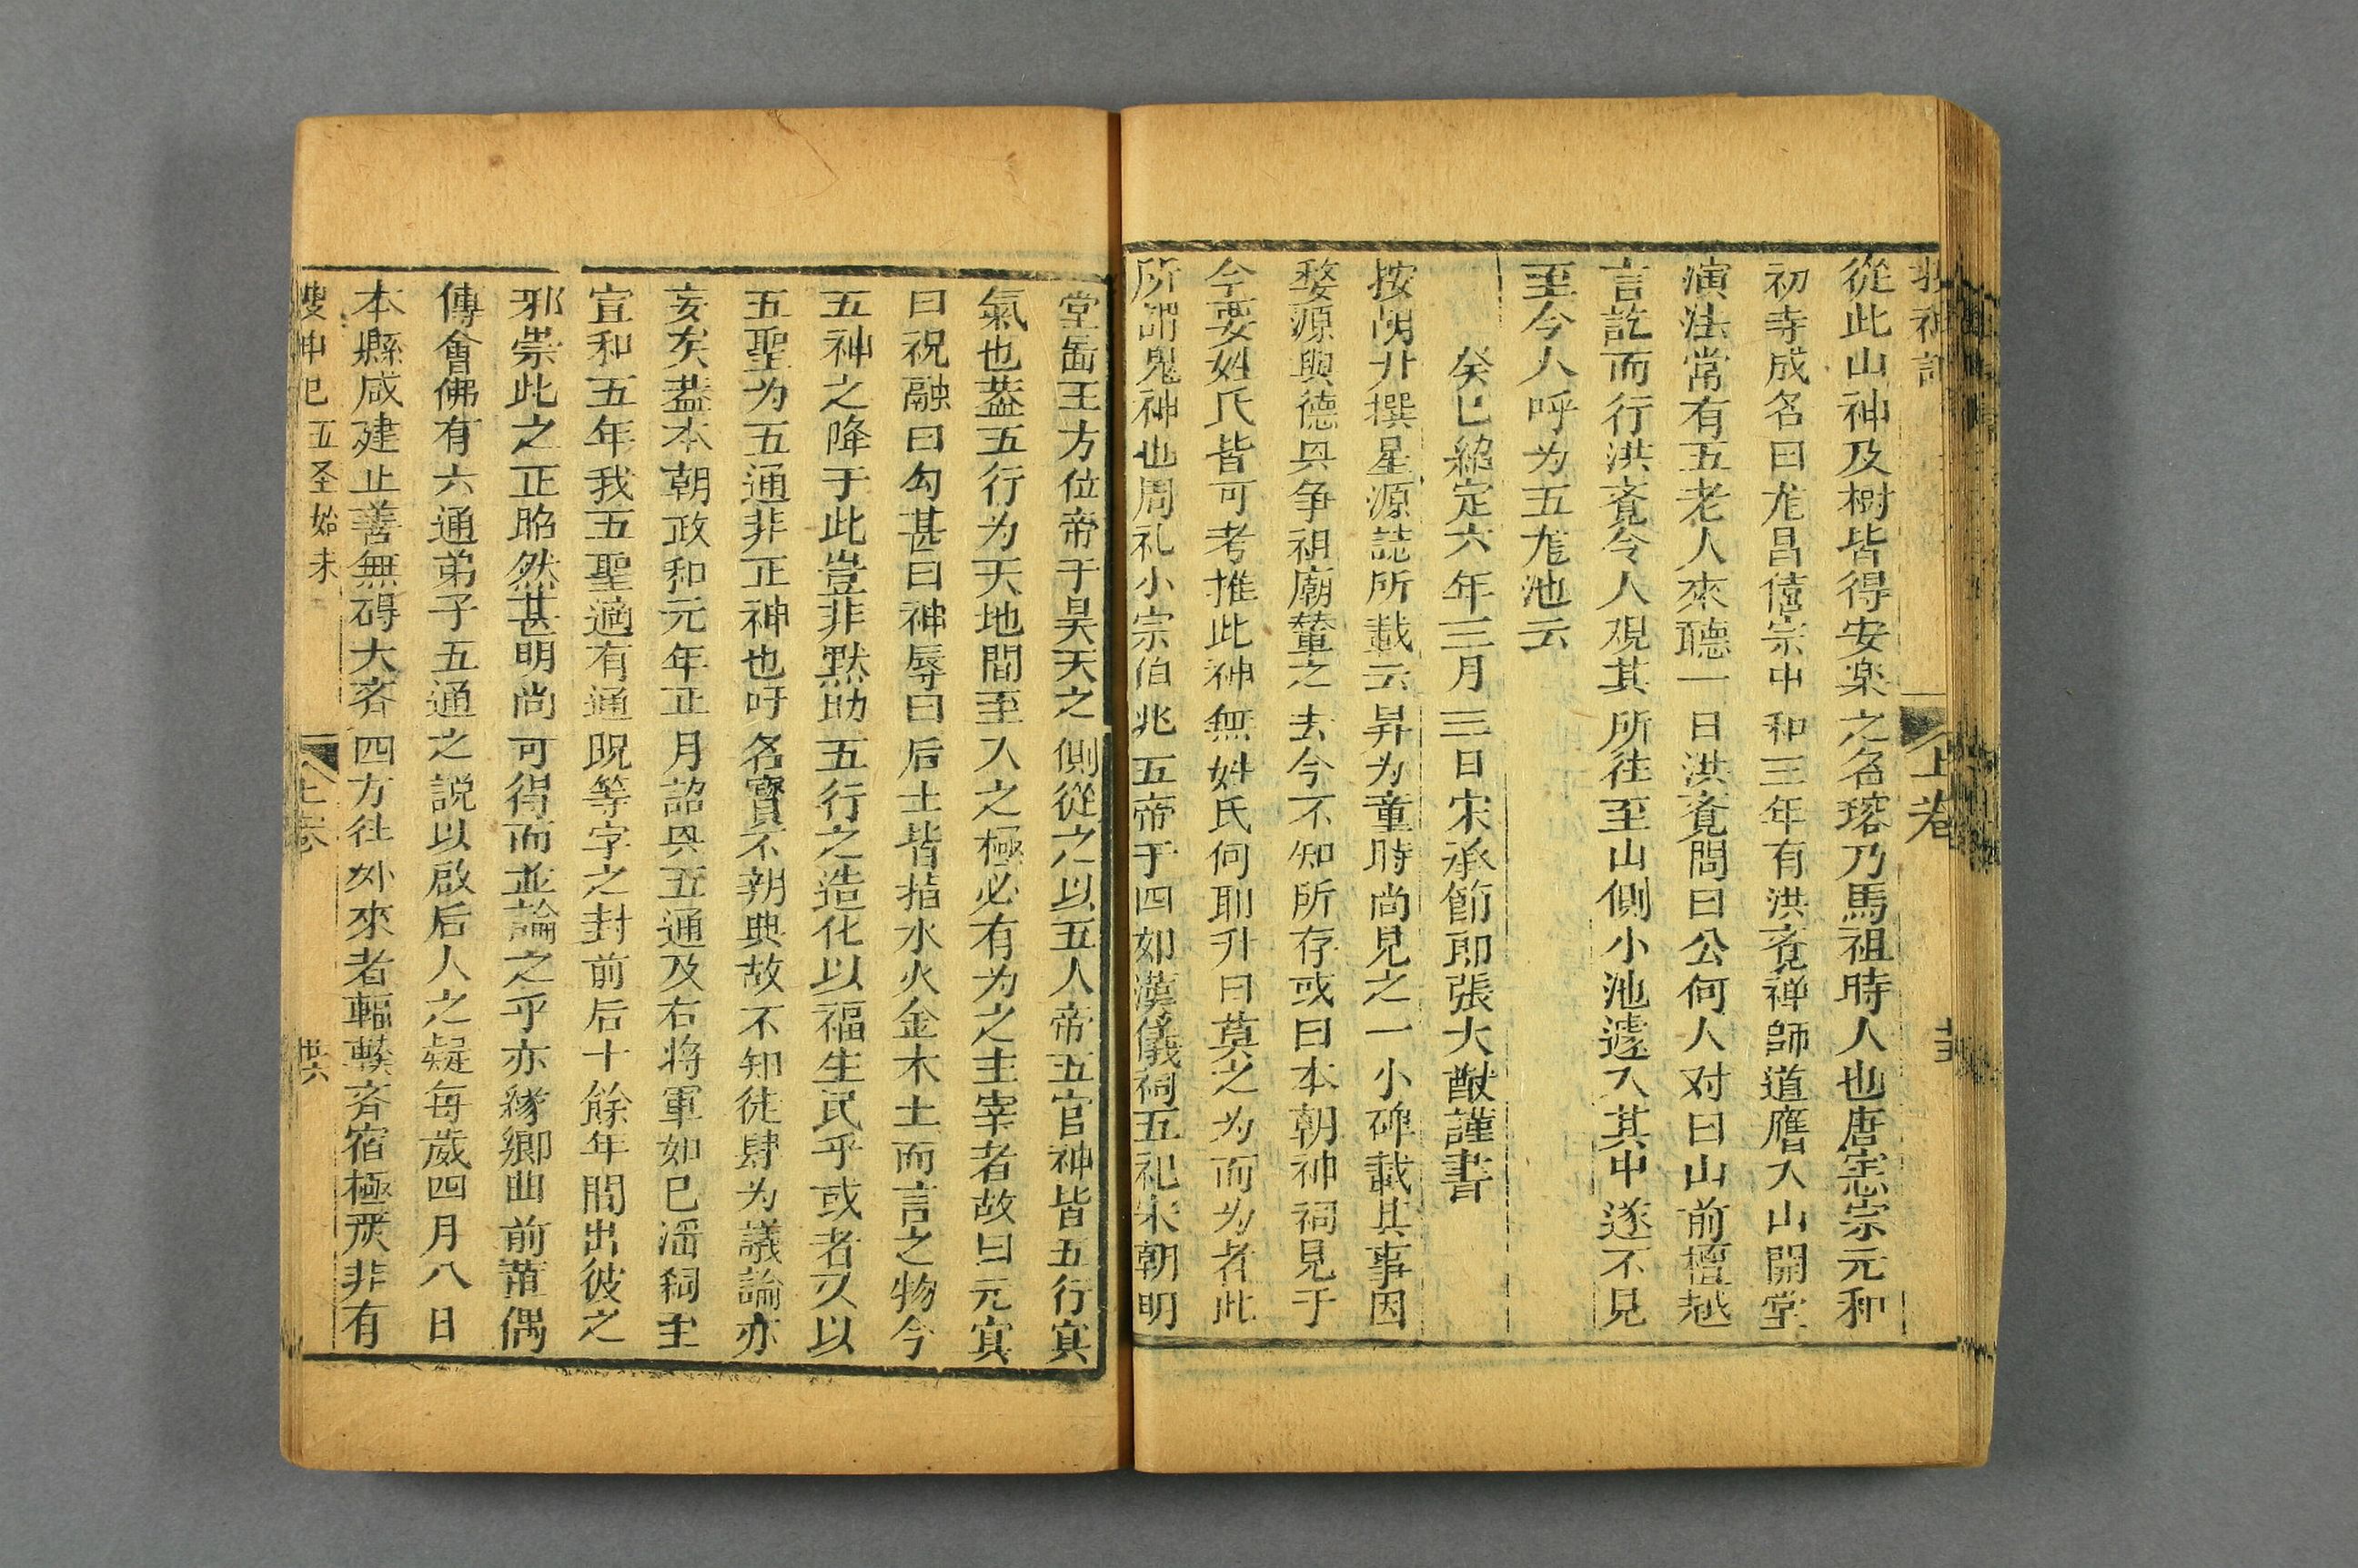 搜神記 上卷
從此山神及樹皆得安楽之名瑢乃馬祖時人也唐憲宗元和
初寺成名曰尨昌僖宗中和三年有洪𮗚禅師道膺入山開堂
演法常有五老人來聽一日洪𮗚問曰公何人对曰山前檀越
言訖而行洪𮗚令人覘其所往至山側小池遽入其中遂不見
至今人呼为五尨池云
癸巳紹定六年三月三日宋承節郎張大猷謹書
按胡升撰星源誌所載云昇为童時尚見之一小碑載其事因
婺源與德㒷争祖廟輦之去今不知所存或曰本朝神祠見于
今要姓氏皆可考推此神無姓氏何耶升曰莫之为而为者此
所謂鬼神也周礼小宗伯兆五帝于四如漢儀祠五祀宋朝明
堂啚王方位帝于昊天之側從之以五人帝五官神皆五行寘
氣也葢五行为天地間至入之極必有为之主宰者故曰元寘
曰祝融曰勾甚曰神辱曰后土皆指水火金木土而言之物今
五神之降于此豈非黙助五行之造化以福生民乎或者又以
五聖为五通非正神也吁名寳不朝典故不知徒肆为議論亦
妄矣葢本朝政和元年正月詔㒷五通及右将軍如巳滛祠主
宣和五年我五聖適有通貺等字之封前后十餘年間出彼之
邪祟此之正昭然甚明尚可得而並論之乎亦緣鄉曲前莆偶
傳會佛有六通弟子五通之説以啟后人之疑每歲四月八日
本縣咸建止善無碍大斎四方徃外來者輻輳斉宿極䖍非有
搜神記 五圣始末 上卷